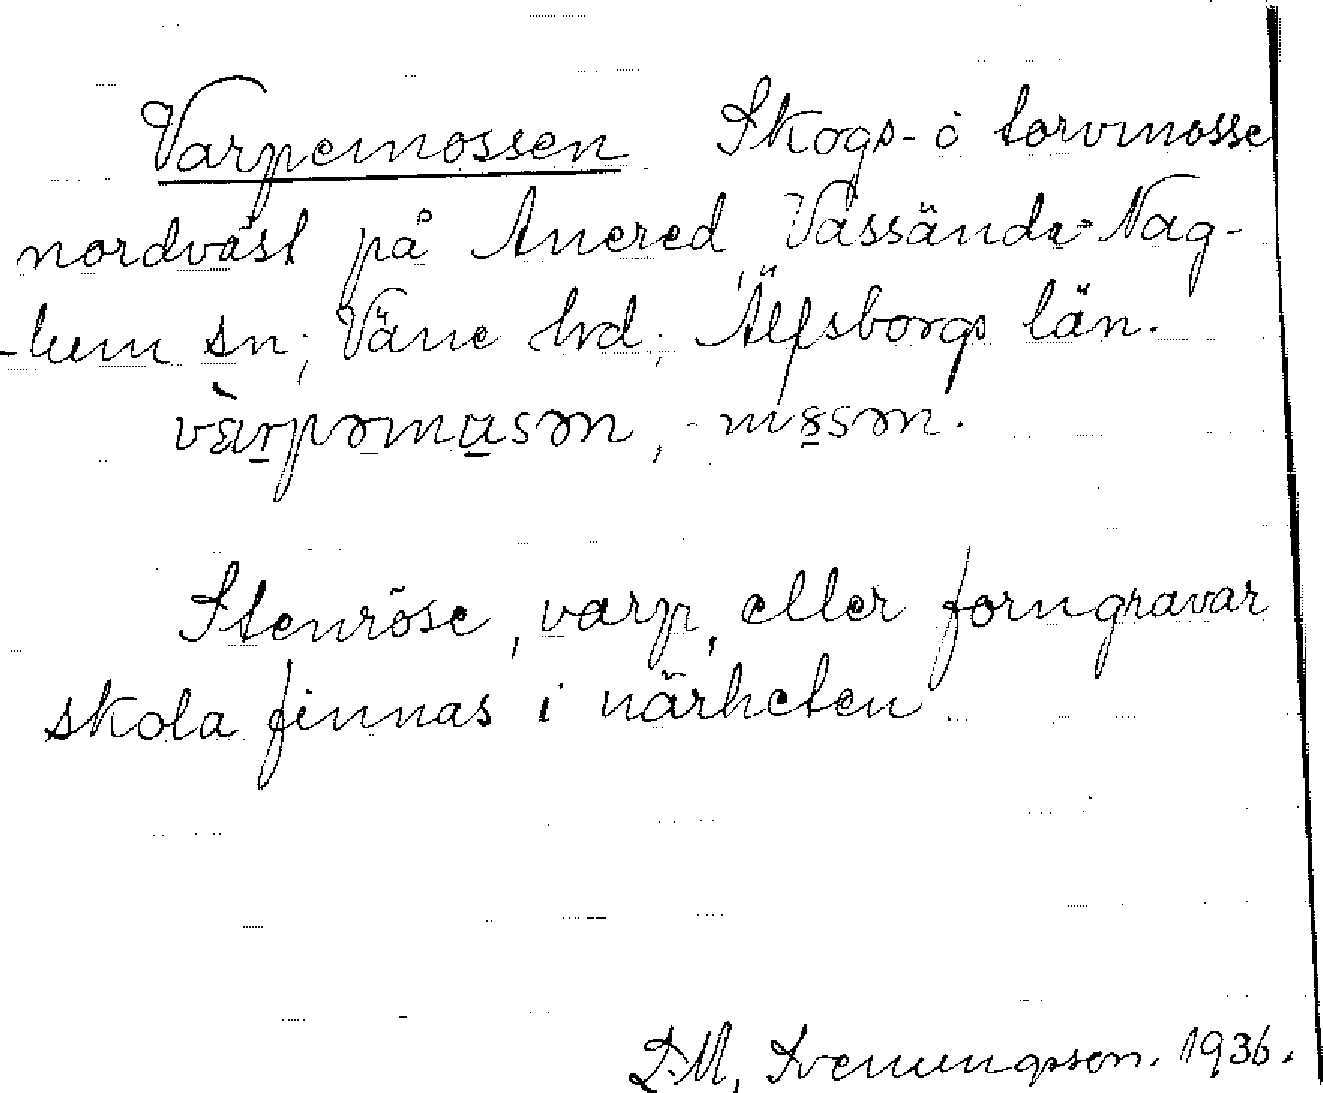 Varpemossen Skogs- o torvmosse
nordväst på Anered, Vassända-Nag-
-lum sn; Väne hrd; Älfsborgs län.
vàrpəmusən, -məsən.
Stenröse, varp, eller forngravar
skola finnas i närheten
D.M, Svenungsson. 1936.